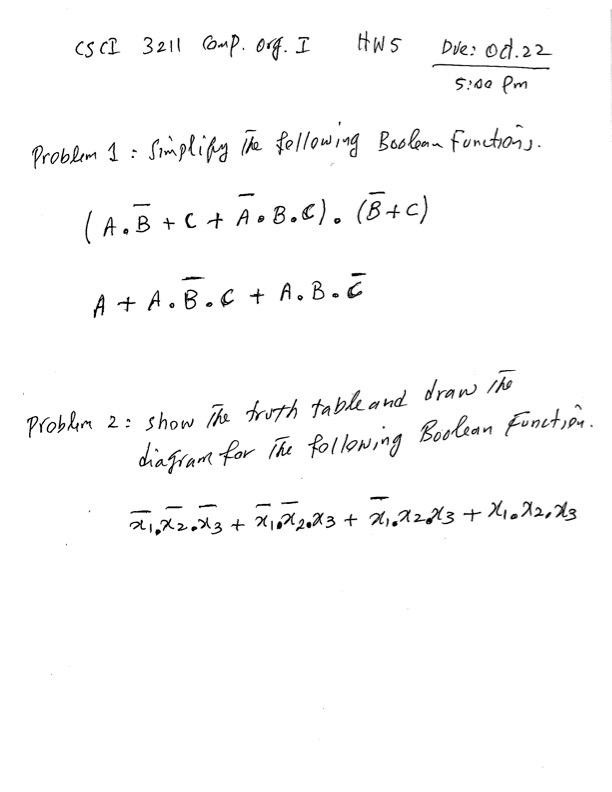 CSCI 3211 Comp. Org. I HW5 Due: Oct.22
5:00 Pm
Problem 1 : Simplify The following Boolean Functions.
(A.B̅ + C + A̅.B.C).(B̅+C)
A + A.B̅.C + A.B.C̅
Problem 2: Show The truth table and draw The
diagram for The following Boolean Function.
x̅1.x̅2.x̅3 + x̅1.x̅2.x3 + x̅1.x2.x3 + x1.x2.x3